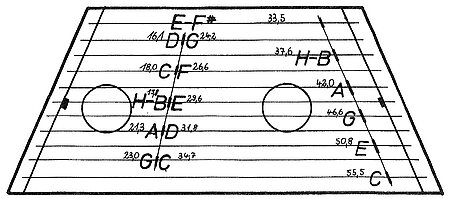 E-F# 33,5
16,1 D G 24,2
37,6 H-B
18,0 C F 26,6
42,0 A
H-B 17,8 E 29,6
46,6 G
21,3 A D 31,8
50,8 E
23,0 G C 34,7
55,5 C